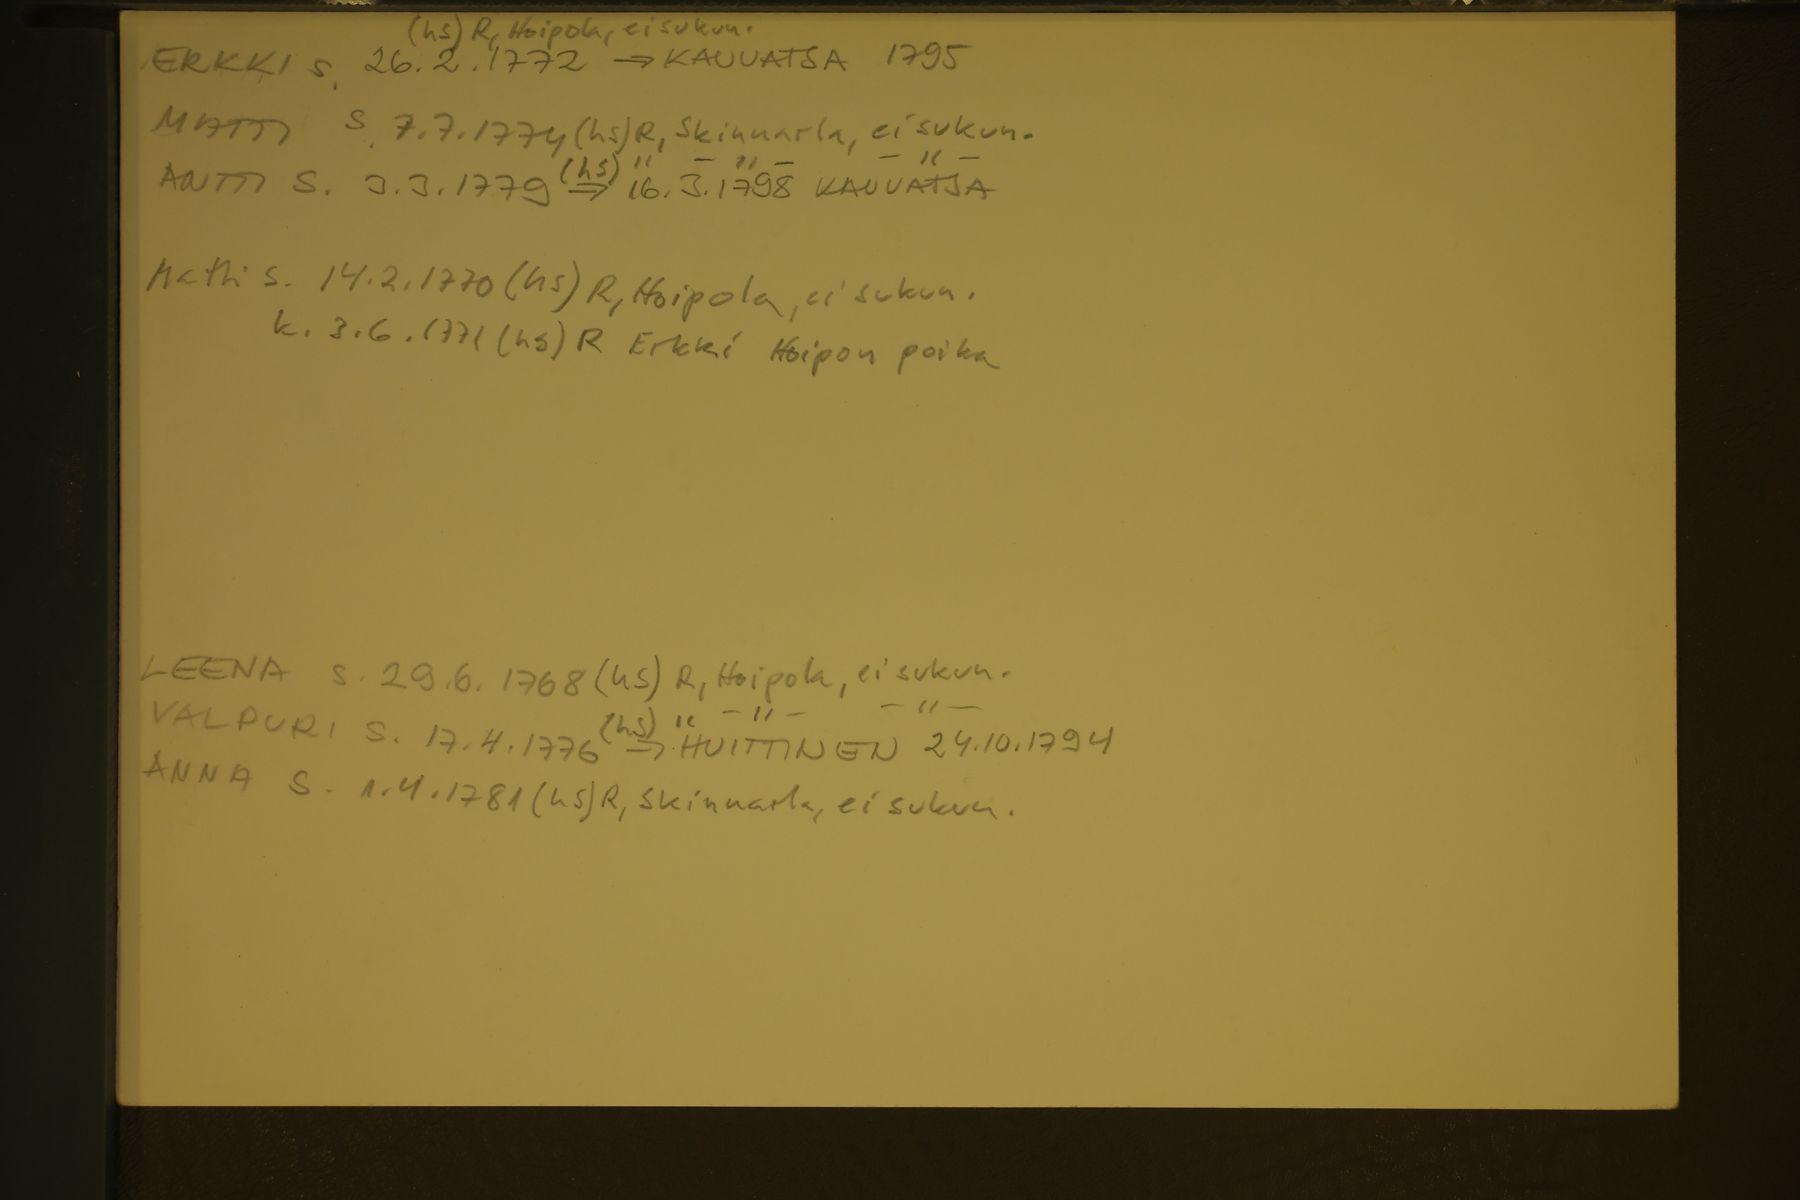 (hs) R, Hoipola, ei sukun.
ERKKI s. 26.2.1772 → KAUVATSA 1795
MATTI S. 7.7.1774 (hs) R, Skinnarla, ei sukun.
(hs) " - " - - " -
ANTTI S. 3.3.1779 ⇒ 16.3.1798 KAUVATSA
Matti s. 14.2.1770 (hs) R, Hoipola, ei sukun.
k. 3.6.1771 (hs) R Erkki Hoipon poika
LEENA s. 29.6.1768 (hs) R, Hoipola, ei sukun.
(hs) " - " - - " -
VALPURI S. 17.4.1776 → HUITTINEN 24.10.1794
ANNA S. 1.4.1781 (hs) R, Skinnarla, ei sukun.